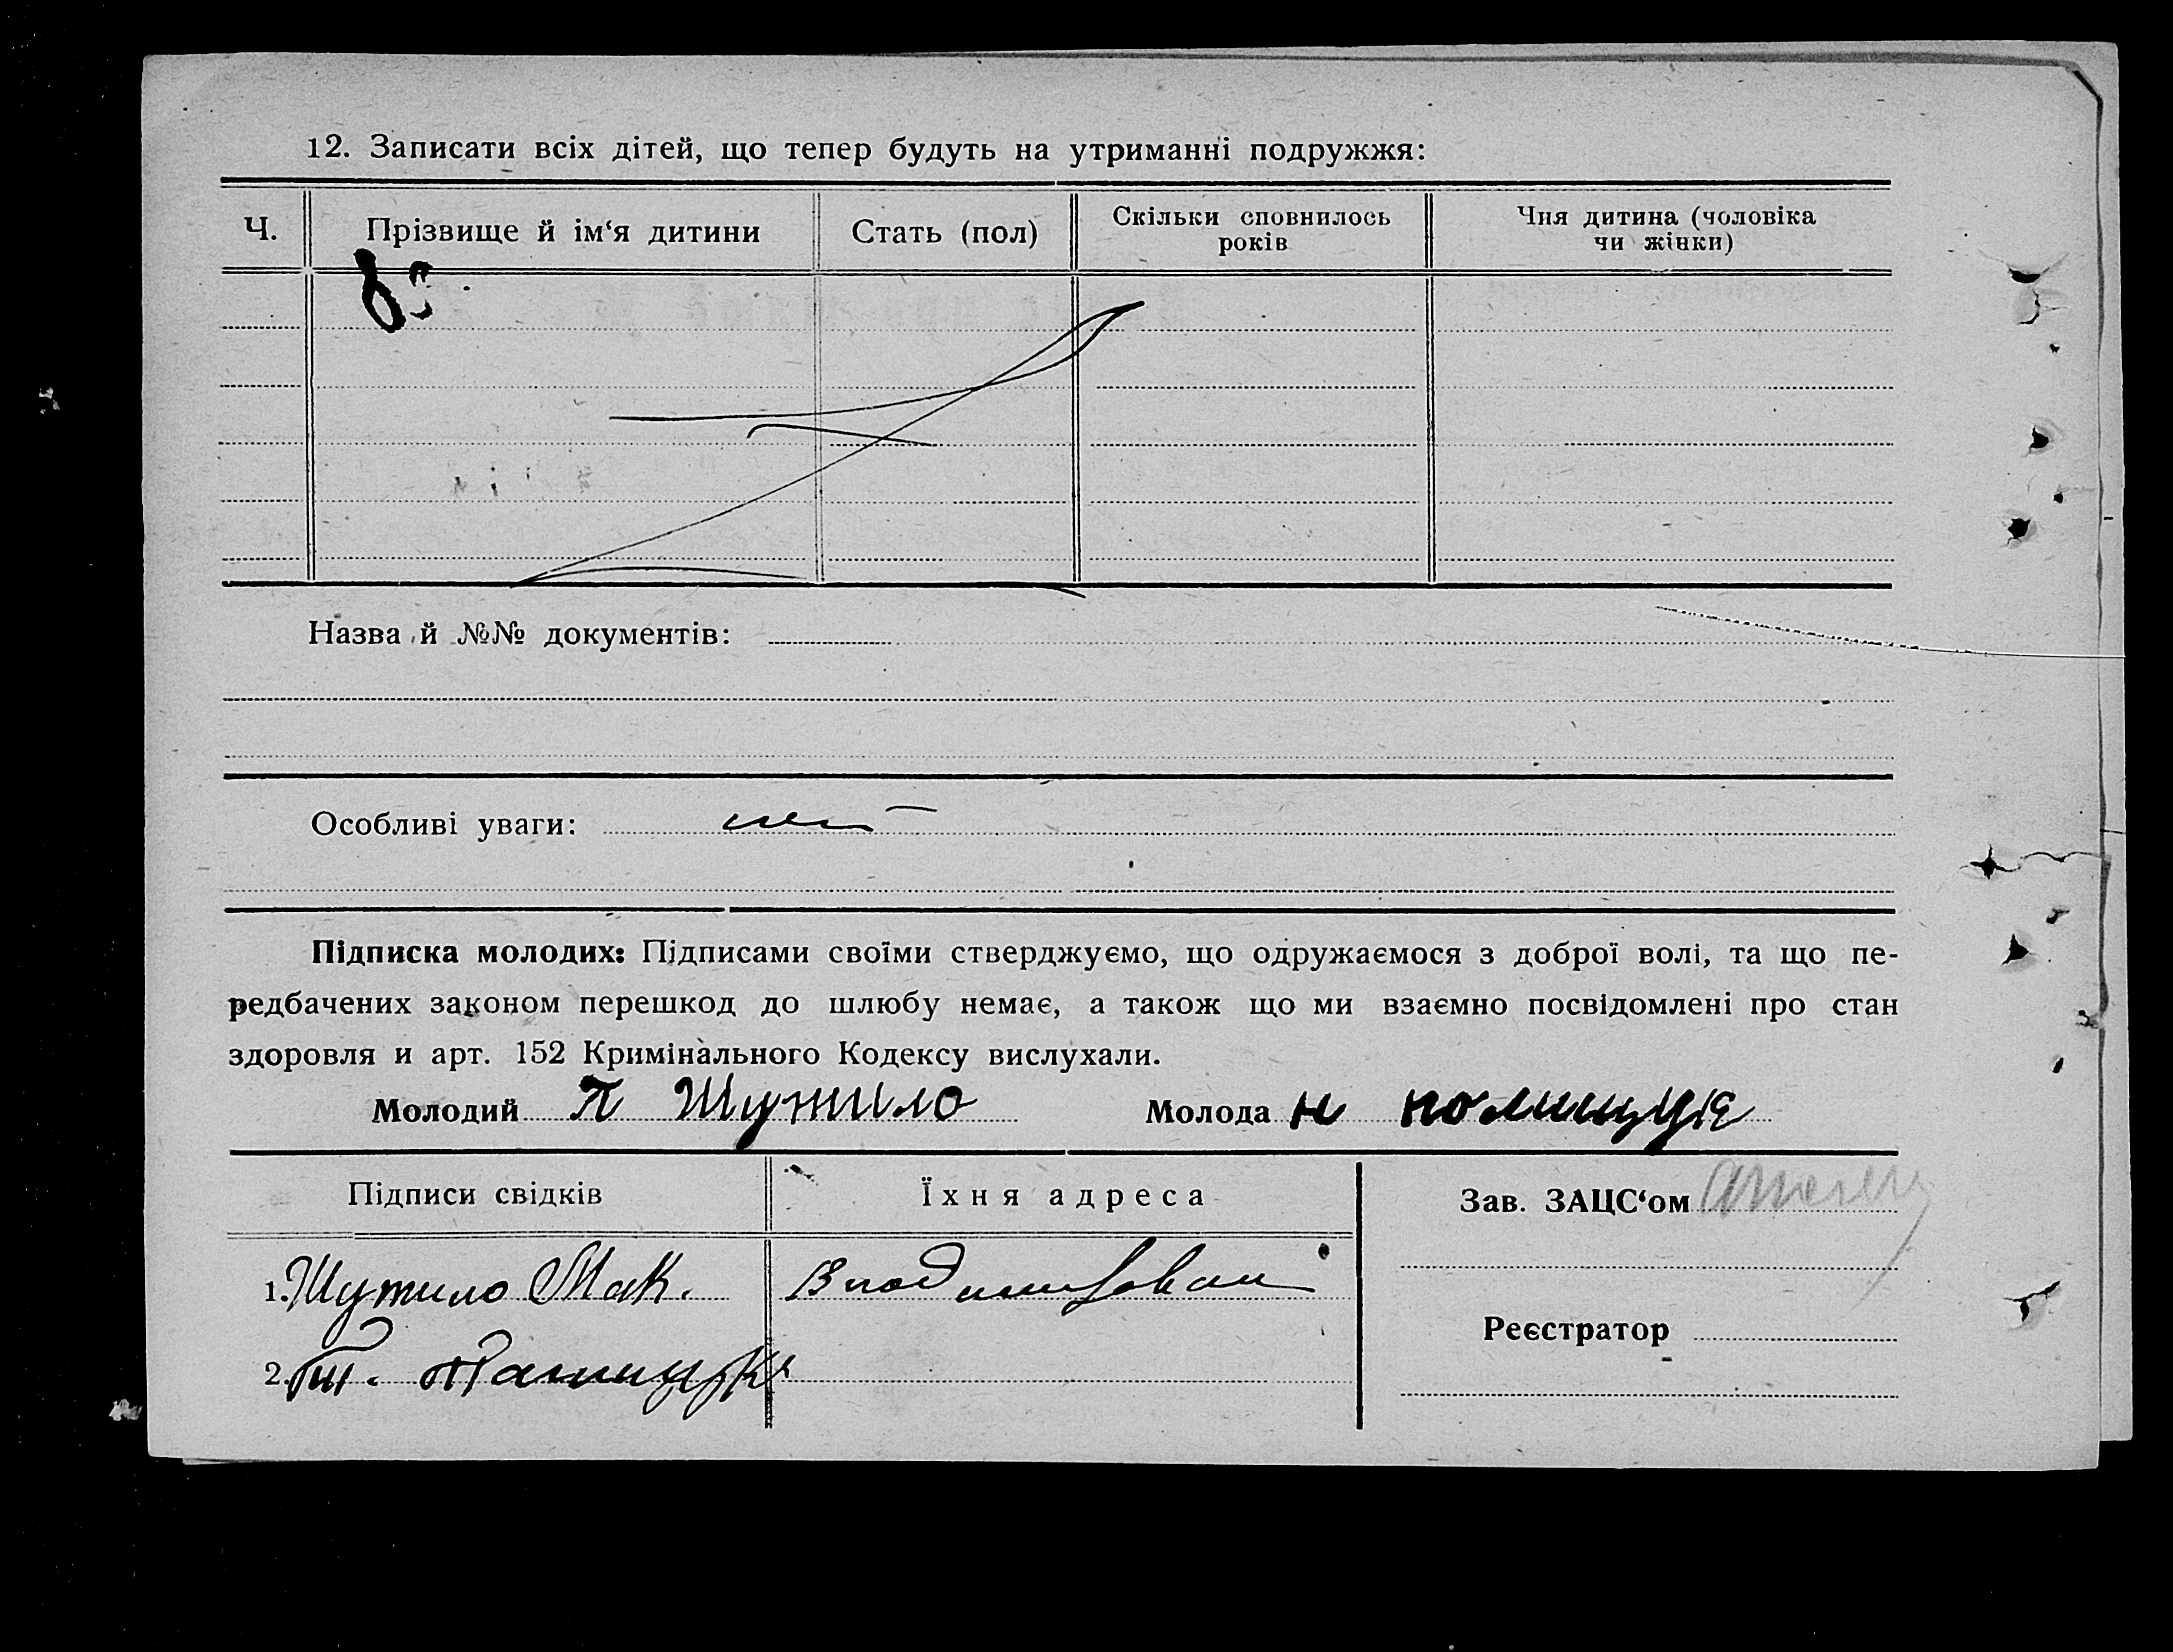 12. Записати всіх дітей, що тепер будуть на утриманні подружжя:
Ч. Прізвище й ім‘я дитини Стать (пол) Скільки сповнилось років Чия дитина (чоловіка чи жінки)
Назва й №№ документів:
Особливі уваги: нет
Підписка молодих: Підписами своїми стверджуємо, що одружаємося з доброї волі, та що пе-
редбачених законом перешкод до шлюбу немає, а також що ми взаємно посвідомлені про стан
здоровля и арт. 152 Кримінального Кодексу вислухали.
Молодий П Шутило Молода Н
Підписи свідків Їхня адреса Зав. ЗАЦС‘ом
1. Шутило Мак.
Реєстратор
2.